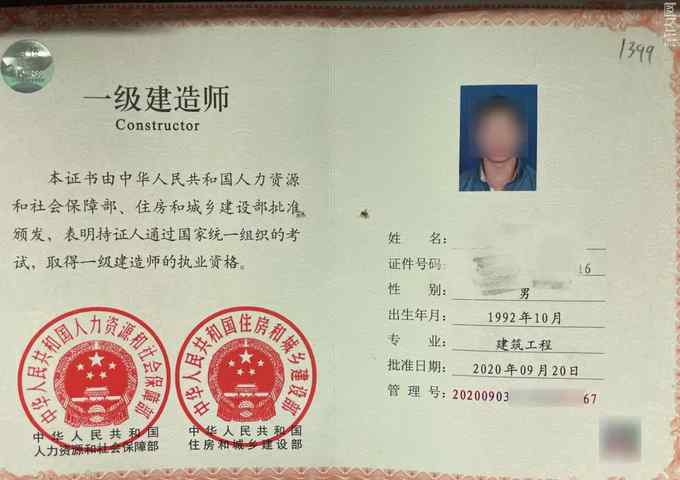 1399
一级建造师
Constructor
本证书由中华人民共和国人力资源
和社会保障部、住房和城乡建设部批准
颁发，表明持证人通过国家统一组织的考
试，取得一级建造师的执业资格。
中华人民共和国人力资源和社会保障部
中华人民共和国
人力资源和社会保障部
中华人民共和国住房和城乡建设部
中华人民共和国
住房和城乡建设部
姓 名：
证件号码： 16
性 别： 男
出生年月： 1992年10月
专 业： 建筑工程
批准日期： 2020年09月20日
管 理 号： 20200903 67